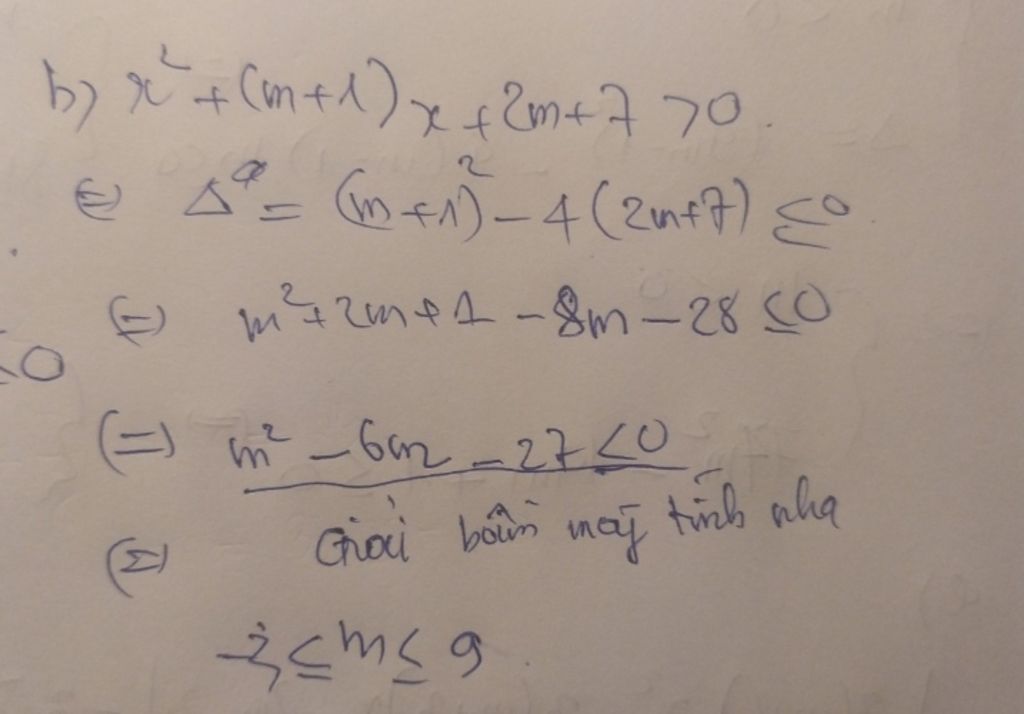 b) x² + (m+1)x + 2m+7 >0.
⇔ Δ = (m+1)² - 4(2m+7) ≤0.
⇔ m² + 2m + 1 - 8m - 28 ≤0
≤0
⇔ m² - 6m - 27 ≤0
⇔ Giải bằng máy tính nha
-3 ≤ m ≤ 9.